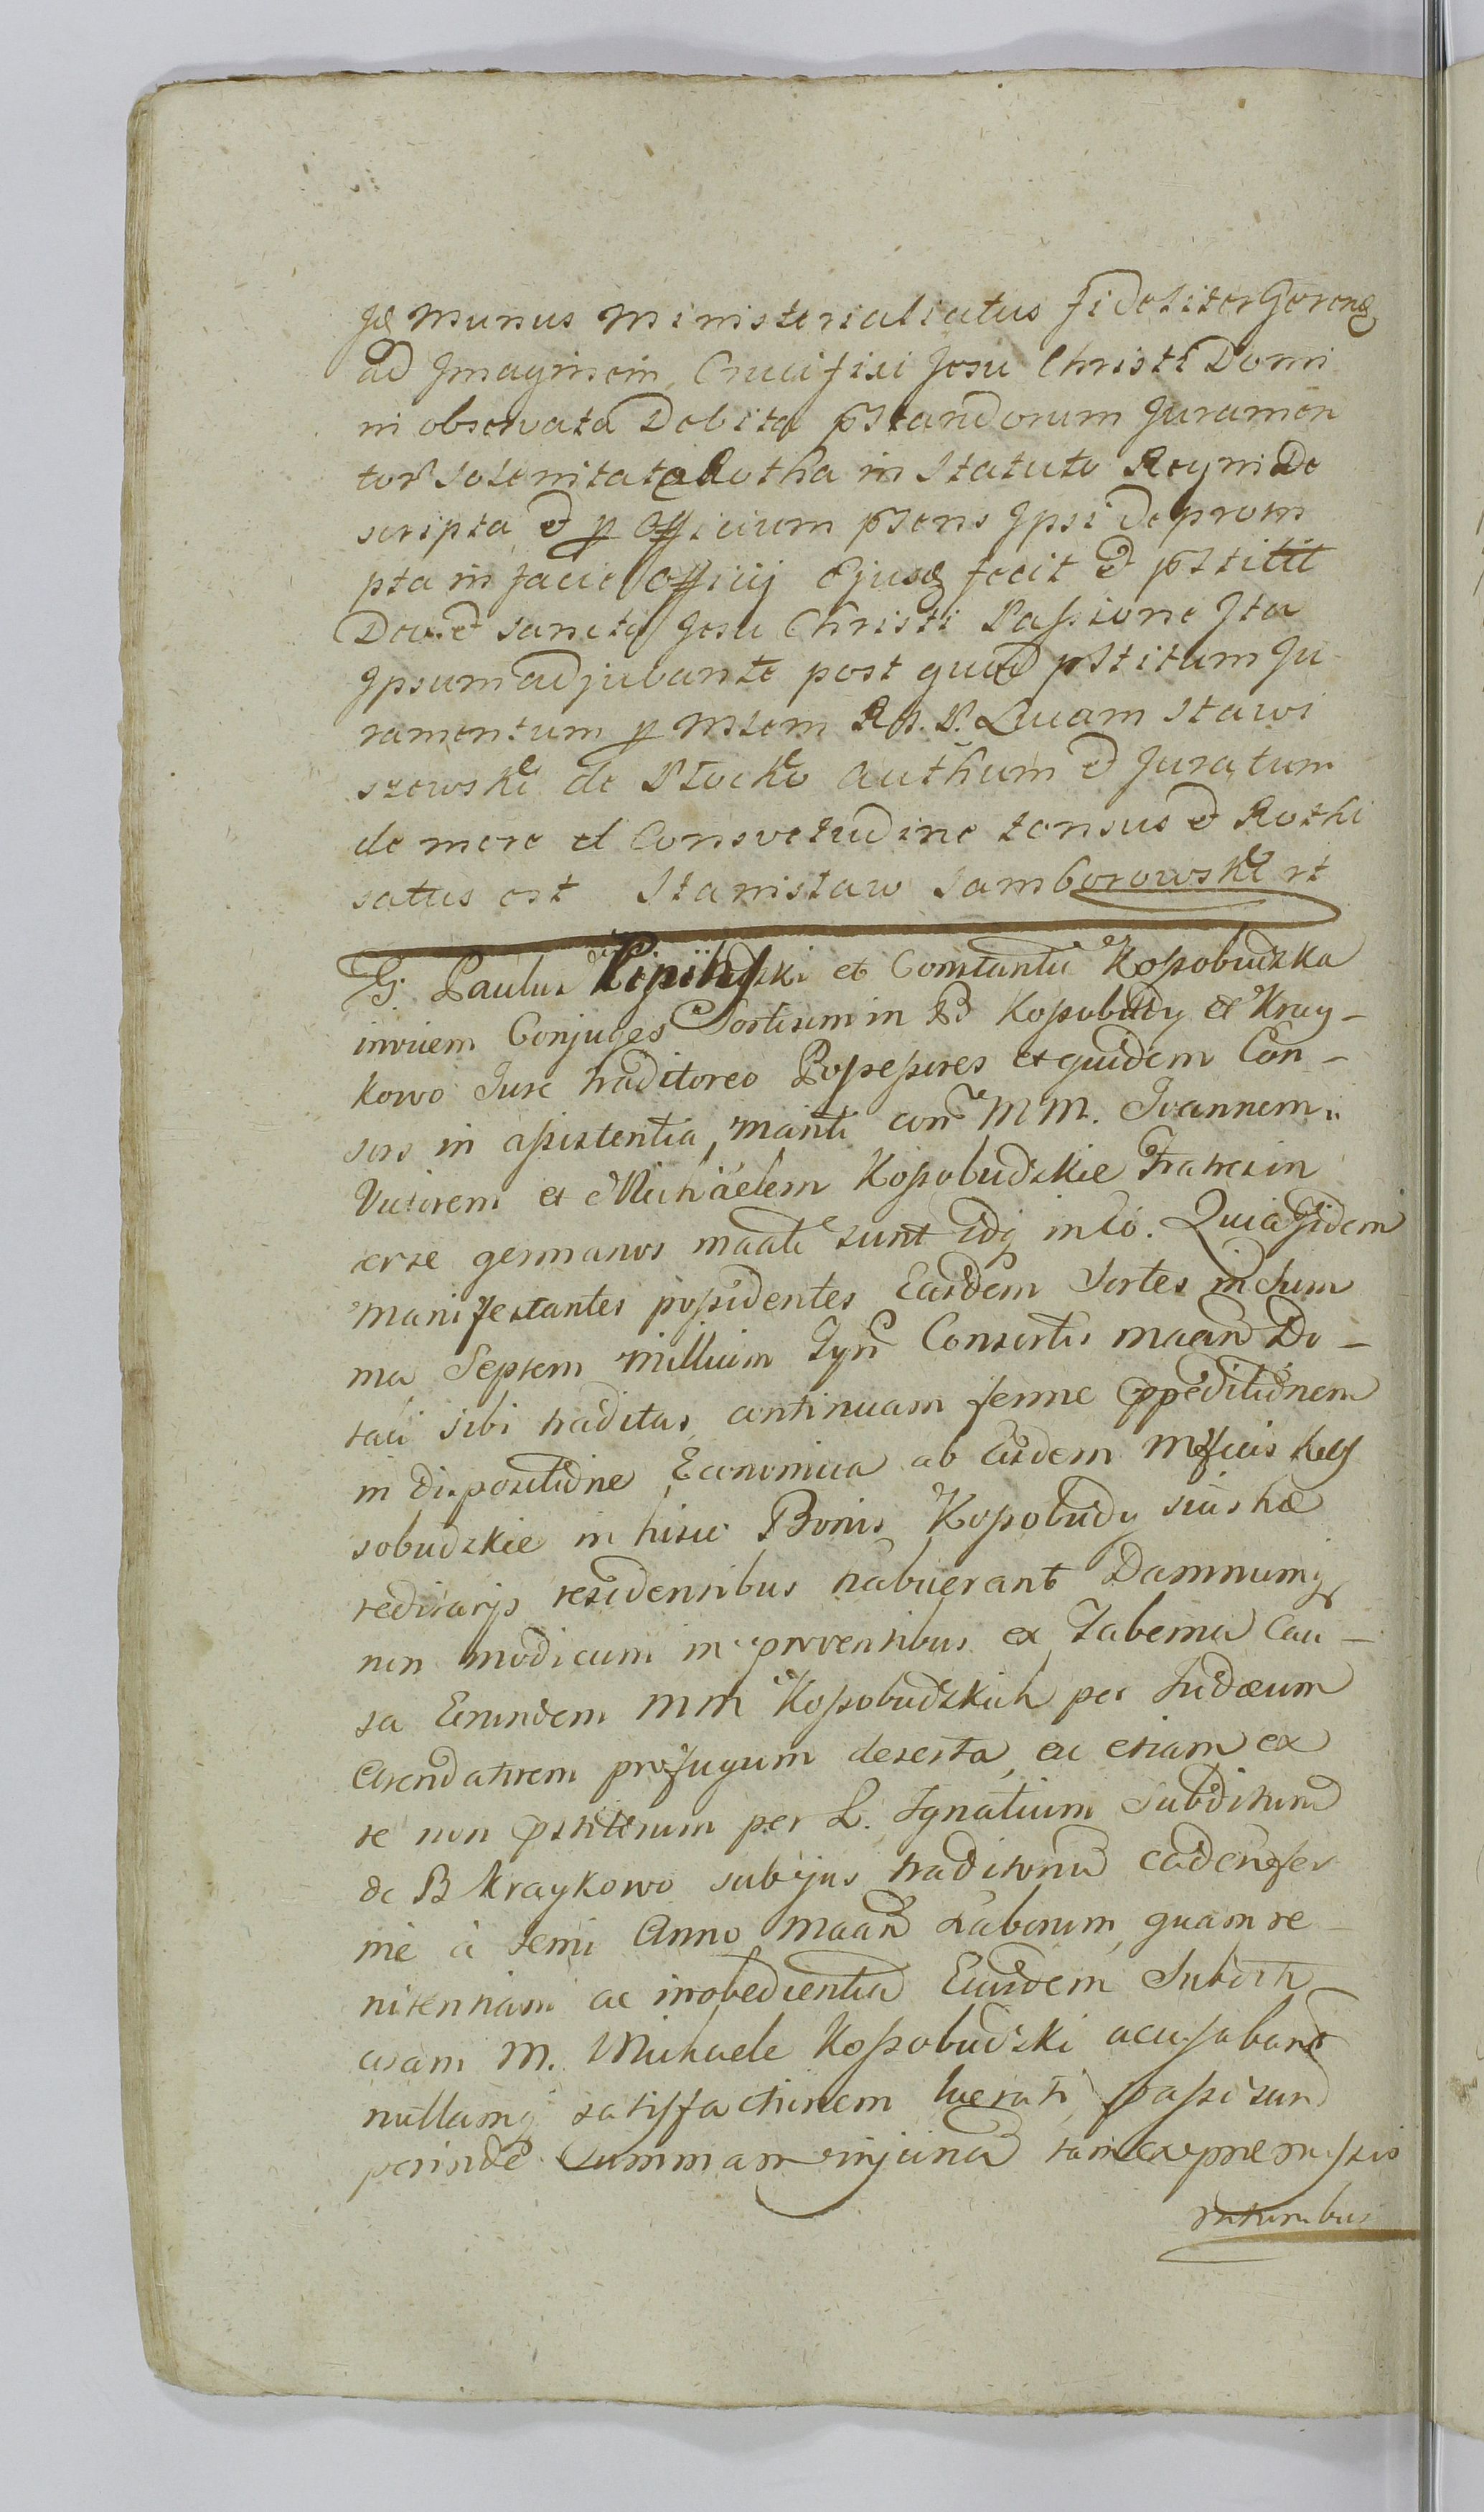 munus ministerialiatus fideliter Gerendꝫ
ad Jmaginem Crucifixi Jesu Christi Domi
ni observata Debita pstandorum Juramen
tor solemnitate Rotha in Statuto Regni De
scripta et p Officium psens Jpsi deprom
pta in facie Officij Ejusdꝫ fecit et pstitit
Deo et sancta Jesu Christi Passione Jta
Jpsum adjubante post quod pstitum Ju
ramentum p Mstem R. P. Lucam Stawi
szewski de Płocko authum et Juratum
de more et Consvetudine tonsus et Rothi
satus est Stanisław Samborowski
G. Paulus et Constantia Kossobudzka
invicem Conjuges Sortium in B Kossobudy et Kray-
kowo Jure traditoreo Possessores et quidem Con-
sors in assistentia mariti con MM. Joannem
Victorem et Michäelem Kossobudzkie Fratres in
ter se germanos sunt idq in eo. Quia Jidem
manifestantes possidentes Easdem Sortes in Sum
ma Septem millium Consortis Do-
tali sibi traditas continuam ferme
in dispositione Economica ab Eisdem
sobudzkie in hisce Bonis Kossobudy suis hæ
reditarijs residentibus habuerant Damnumq
non modicum in proventibus ex Taberna Cau-
sa Eorundem MM Kossobudzkich per Judæum
Arendatorem profugum deserta, ac etiam ex
re non pstitorum per L. Ignatium Subditum
de B Kraykowo sub jus traditorium cadene fer
me à semi Anno Laborum, quam re
nitentiam ac inobedientia Eiusdem Subditi
coram M. Michaele Kossobudzki acusabant
nullamq satisfactionem lucrati, passi sunt
perinde Summam injuria tam ex præmissis